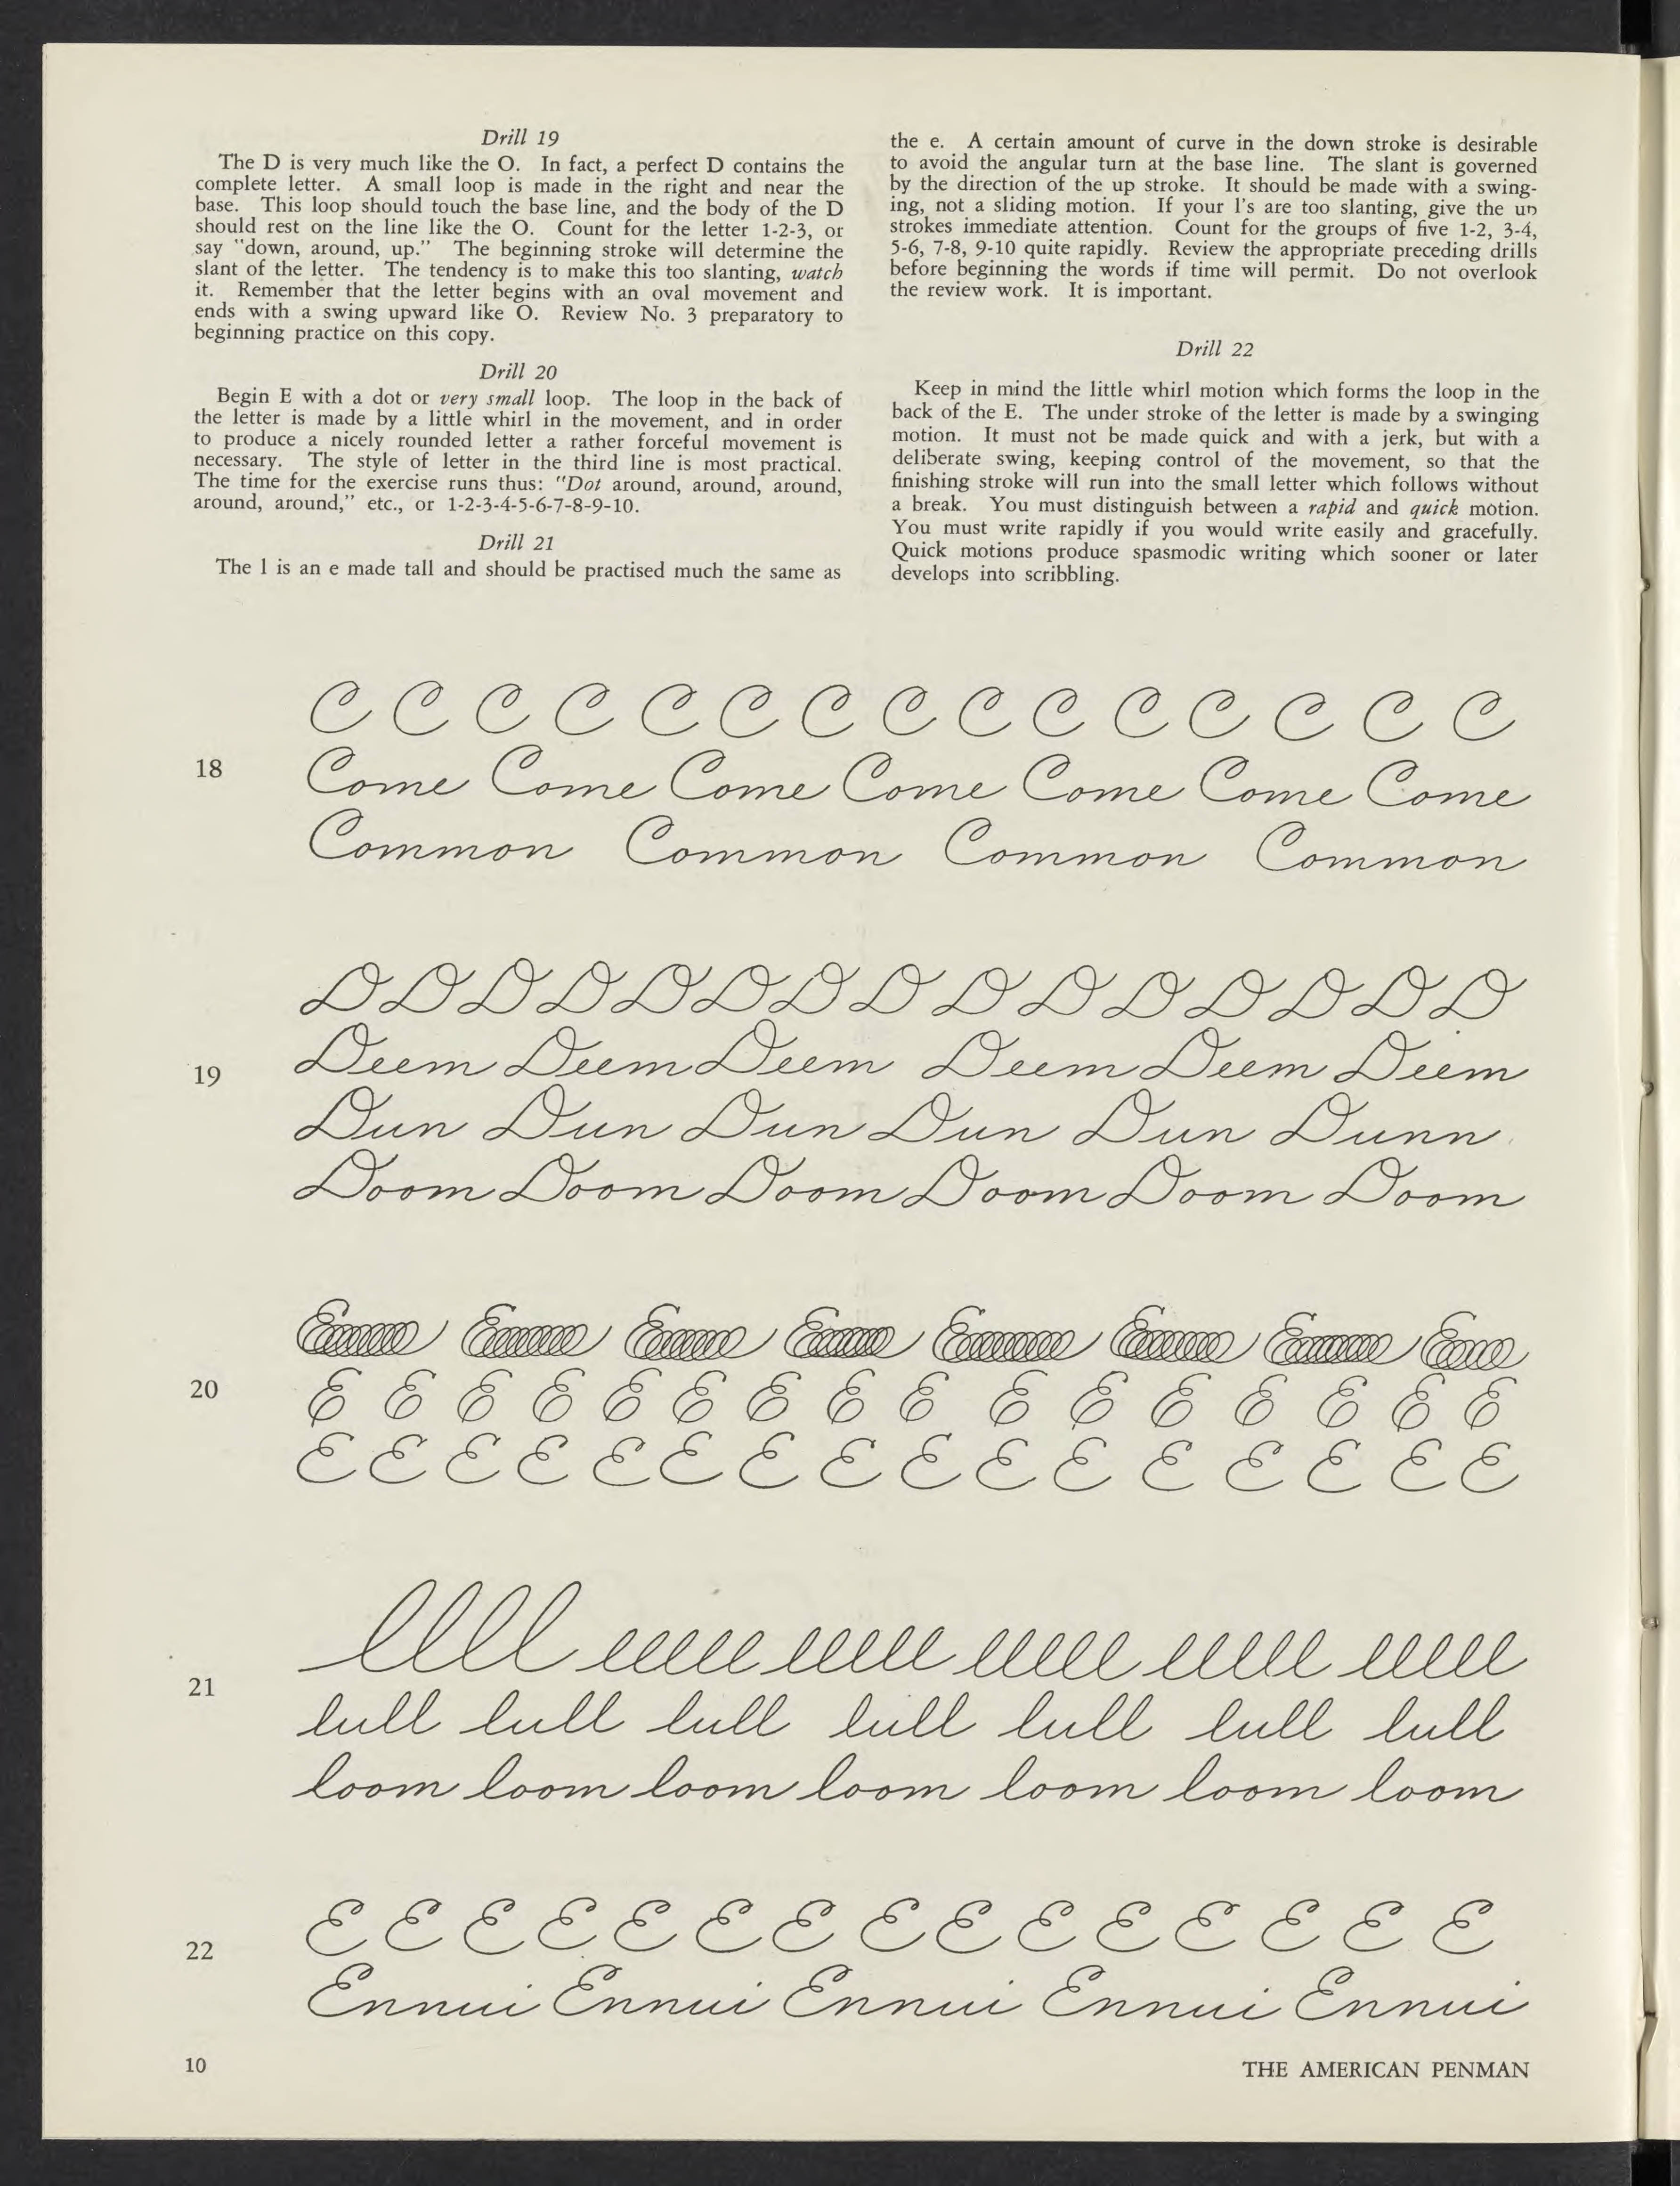 Drill 19
The D is very much like the O. In fact, a perfect D contains the
complete letter. A small loop is made in the right and near the
base. This loop should touch the base line, and the body of the D
should rest on the line like the O. Count for the letter 1-2-3, or
say "down, around, up." The beginning stroke will determine the
slant of the letter. The tendency is to make this too slanting, watch
it. Remember that the letter begins with an oval movement and
ends with a swing upward like O. Review No. 3 preparatory to
beginning practice on this copy.
Drill 20
Begin E with a dot or very small loop. The loop in the back of
the letter is made by a little whirl in the movement, and in order
to produce a nicely rounded letter a rather forceful movement is
necessary. The style of letter in the third line is most practical.
The time for the exercise runs thus: "Dot around, around, around,
around, around," etc., or 1-2-3-4-5-6-7-8-9-10.
Drill 21
The l is an e made tall and should be practised much the same as
the e. A certain amount of curve in the down stroke is desirable
to avoid the angular turn at the base line. The slant is governed
by the direction of the up stroke. It should be made with a swing-
ing, not a sliding motion. If your l's are too slanting, give the up
strokes immediate attention. Count for the groups of five 1-2, 3-4,
5-6, 7-8, 9-10 quite rapidly. Review the appropriate preceding drills
before beginning the words if time will permit. Do not overlook
the review work. It is important.
Drill 22
Keep in mind the little whirl motion which forms the loop in the
back of the E. The under stroke of the letter is made by a swinging
motion. It must not be made quick and with a jerk, but with a
deliberate swing, keeping control of the movement, so that the
finishing stroke will run into the small letter which follows without
a break. You must distinguish between a rapid and quick motion.
You must write rapidly if you would write easily and gracefully.
Quick motions produce spasmodic writing which sooner or later
develops into scribbling.
C C C C C C C C C C C C C C C
18
Come Come Come Come Come Come Come
Common Common Common Common
D D D D D D D D D D D D D D D
19
Deem Deem Deem Deem Deem Deem
Dun Dun Dun Dun Dun Dunn
Doom Doom Doom Doom Doom Doom
E E E E E E E E
20
E E E E E E E E E E E E E E E E
E E E E E E E E E E E E E E E E
llll lllll lllll lllll lllll lllll
21
lull lull lull lull lull lull lull
loom loom loom loom loom loom loom
E E E E E E E E E E E E E E E
22
Ennui Ennui Ennui Ennui Ennui
10
THE AMERICAN PENMAN